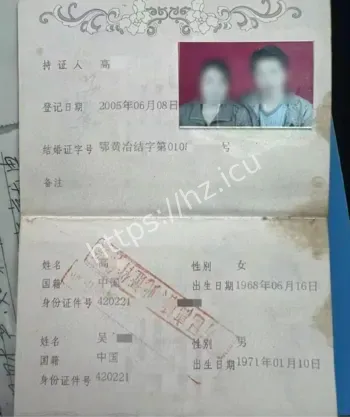 持证人 高
登记日期 2005年06月08日
结婚证字号 鄂黄冶结字第010 号
备注
https://hz.icu
姓名 高 性别 女
国籍 中国 出生日期1968年06月16日
身份证件号 420221
姓名 吴 性别 男
国籍 中国 出生日期1971年01月10日
身份证件号 420221